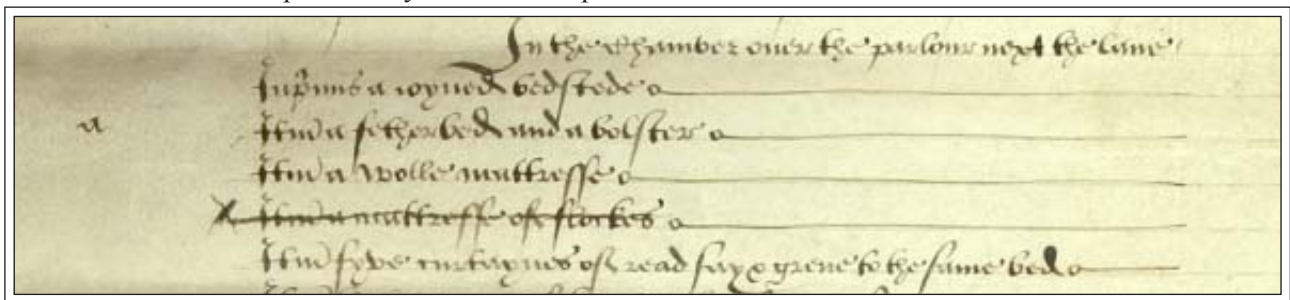 In the Chamber ouer the parlour next the lane
Inprimis a ioyned bedstede
a
Itm a fetherbed and a bolster
Itm a wolle mattresse
Itm a mattresse of flockes
Itm fyve curtaynes of read say &amp; grene to the same bed